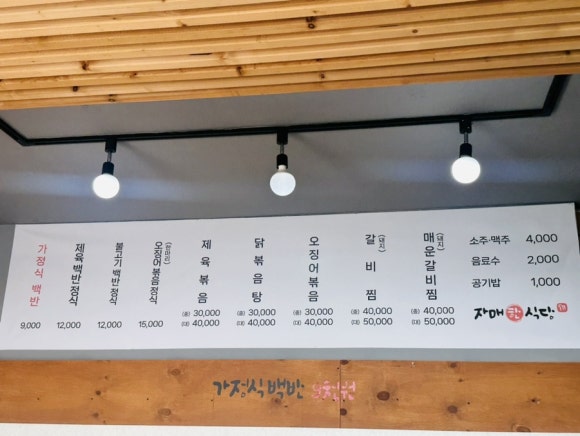 가정식 백반
9,000
제육백반정식
12,000
불고기백반정식
12,000
오징어볶음정식
15,000
제육볶음
(중) 30,000
(대) 40,000
닭볶음탕
(중) 30,000
(대) 40,000
오징어볶음
(중) 30,000
(대) 40,000
(돼지)
갈비찜
(중) 40,000
(대) 50,000
(돼지)
매운갈비찜
(중) 40,000
(대) 50,000
소주·맥주 4,000
음료수 2,000
공기밥 1,000
자매 식당
가정식백반